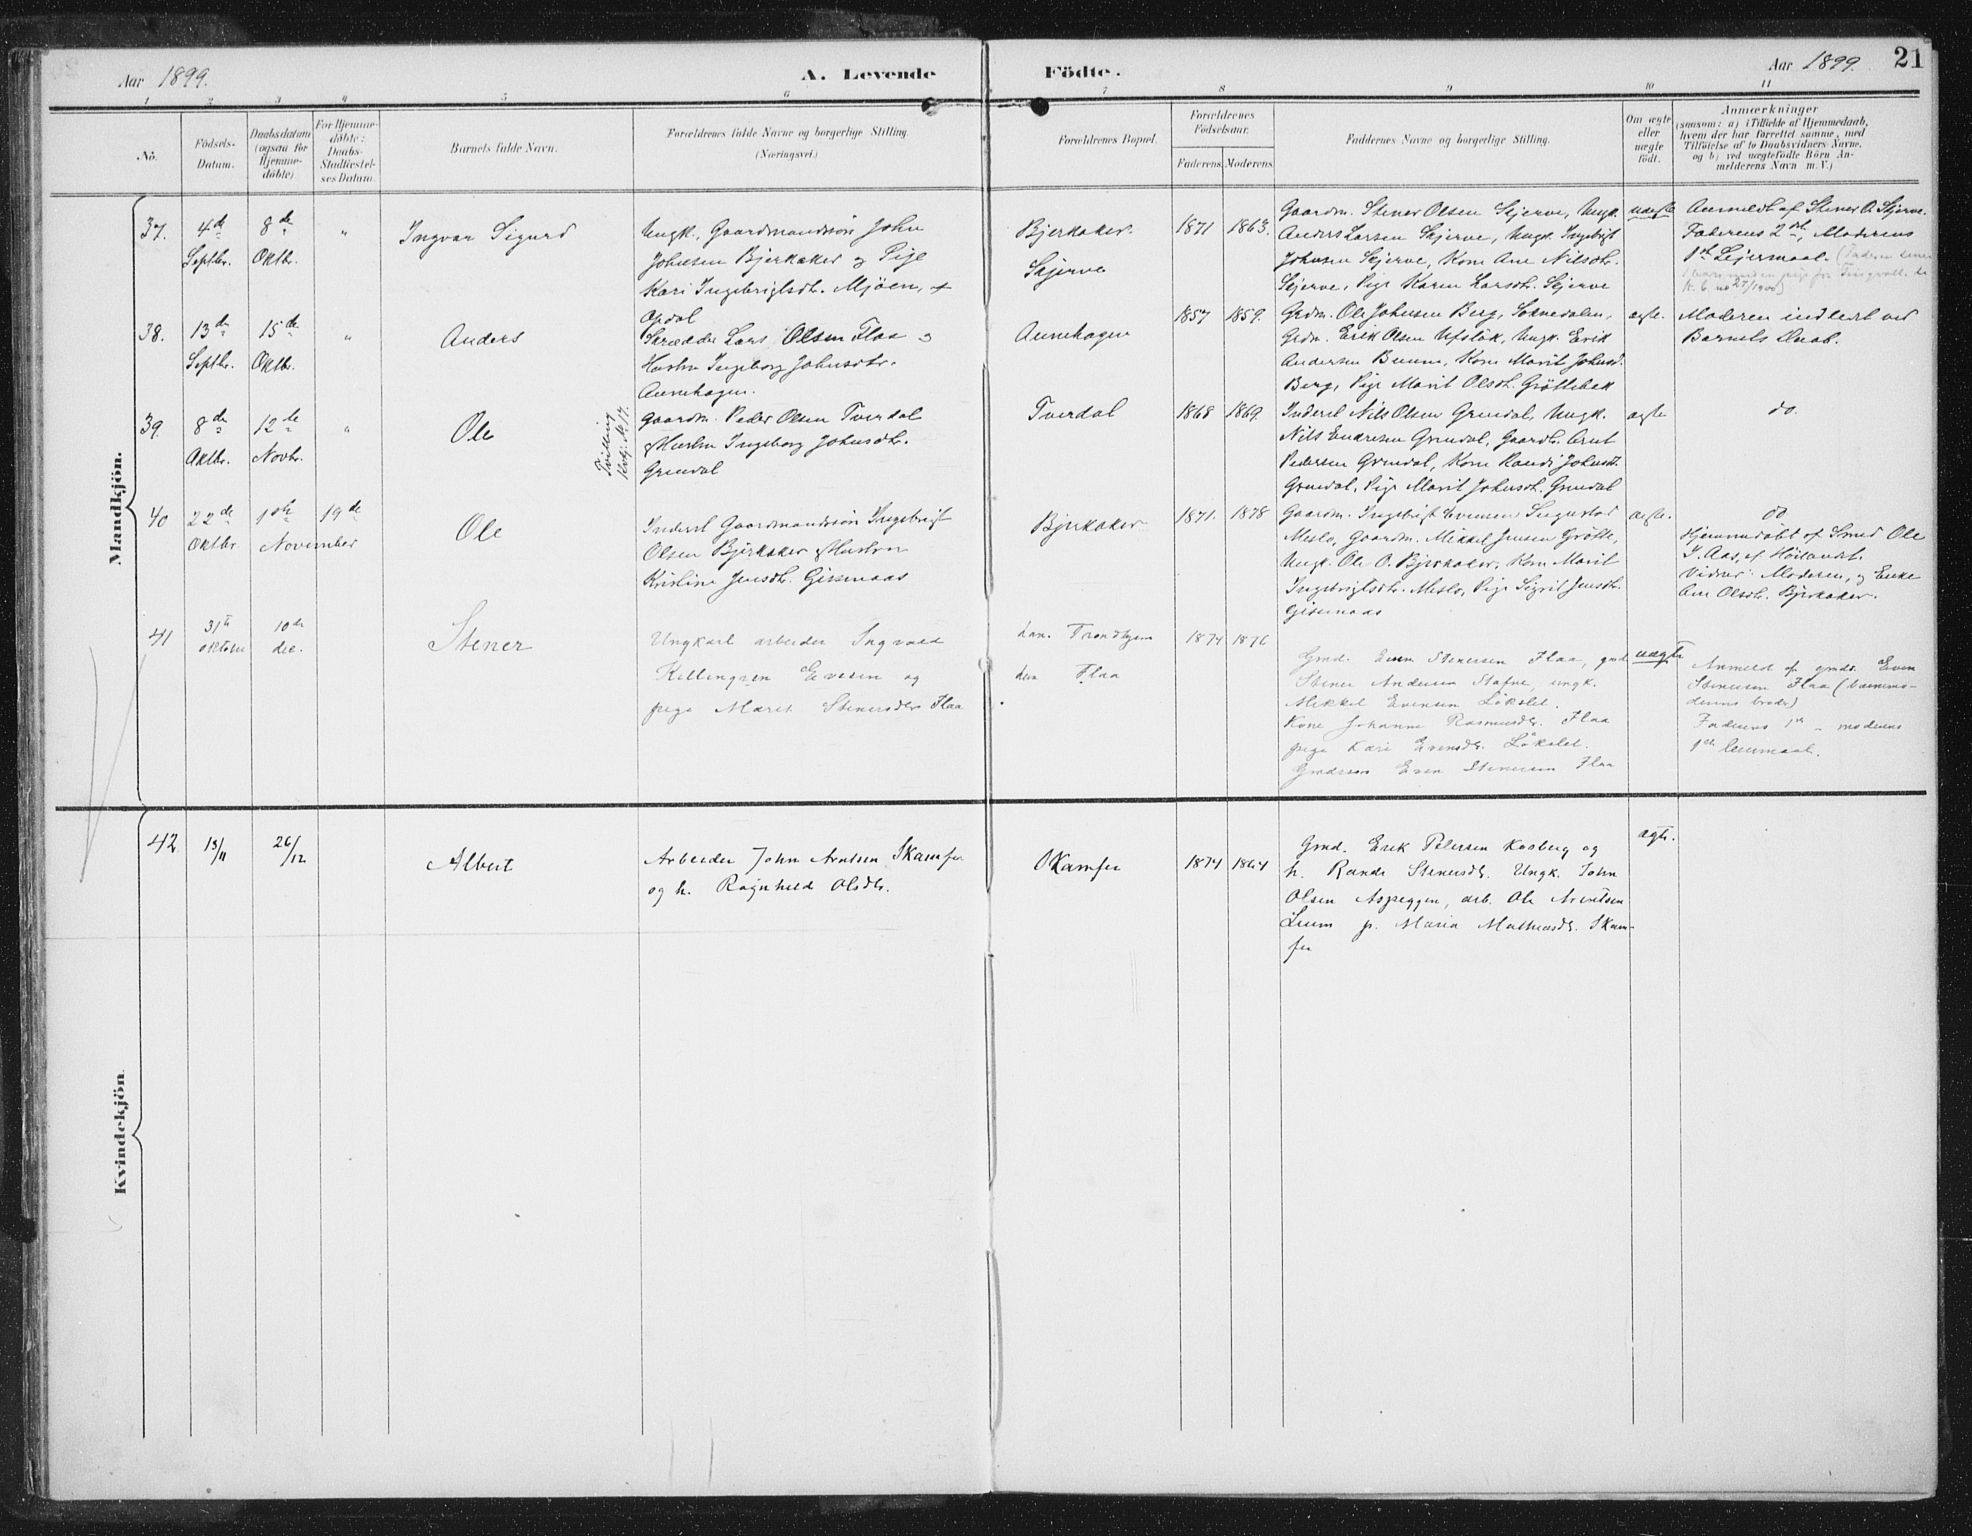 Aar 1899.
A. Levende Födte.
Aar 1899. 21
1 2 3 4 5 6 7 8 9 10 11
No.
Födsels-
Datum.
Daabsdatum
(ogsaa for
Hjemme-
döbte)
For Hjemme-
döbte:
Daabs-
Stadfæstel-
ses Datum.
Barnets fulde Navn.
Forældrenes fulde Navne og borgerlige Stilling.
(Næringsvei.)
Forældrenes Bopæl.
Forældrenes
Födselsaar.
Faderens. Moderens.
Faddernes Navne og borgerlige Stilling.
Om ægte
eller
uægte
födt.
Anmærkninger
(saasom: a) i Tilfælde af Hjemmedaab,
hvem der har forrettet samme, med
Tilföielse af to Daabsvidners Navne,
og b) ved uægtefödte Börn An-
melderens Navn m. V.)
Mandkjön.
37.
4de
Septbr.
8de
Oktbr.
"
Ingvar Sigurd
Ungk., Gaardmandssön John
Johnsen Bjerkaker og Pige
Kari Ingebrigtsdtr. Mjöen,
Opdal
Bjerkaker.
Skjerve
1871 1863.
Gaardm. Stener Olsen Skjerve, Ungk.
Anders Larsen Skjerve, Ungk. Ingebrigt
Johnsen Skjerve, Kone Ane Nilsdtr.
Skjerve, Pige Karen Larsdtr. Skjerve
uægte
Anmeldt af Stener O. Skjerve.
Faderens 2det, Moderens
1ste Leiermaal.
38.
13de
Septbr.
15de
Oktbr.
"
Anders
Skrædder Lars Olsen Flaa og
Hustru Ingeborg Johnsdtr.
Aunehagen.
Aunehagen
1857 1859.
Grdm. Ole Johnsen Berg, Soknedalen,
Grdm. Erik Olsen Ufstök, Ungk. Erik
Andersen Bunne, Kone Marit Johnsd.
Berg, Pige Marit Olsdtr. Gröttebæk
ægte.
Moderen indledt ved
Barnets Daab.
39.
8de
Oktbr.
12te
Novbr.
"
Ole
Tvilling
Kvkj. No 17.
Gaardm. Peder Olsen Tverdal
& Hustru Ingeborg Johnsdtr.
Grindal
Tverdal
1868 1869.
Inderst Nils Olsen Grindal, Ungk.
Nils Endresen Grindal, Gaardbr. Arnt
Pedersen Grindal, Kone Randi Johnsd.
Grindal, Pige Marit Johnsdtr. Grindal
ægte
do.
40
22de
Oktbr.
1ste
November
19de
Ole
Inderst Gaardmandssön Ingebrigt
Olsen Bjerkaker & Hustru
Kristine Jensdtr. Gissinaas
Bjerkaker
1871. 1878
Gaardm. Ingebrigt Evensen
Meslo, Gaardm. Mikkel Jensen Grötte,
Ungk. Ole O. Bjerkaker, Kone Marit
Ingebrigtsdtr. Meslo, Pige Sigrid Jensdtr.
Gissinaas
ægte.
do
Hjemmedöbt af Smed Ole
J. Aas, af Höilandet.
Vidner: Moderen, og Enke
Ane Olsdtr. Bjerkaker.
41
31te
oktober
10de
dec.
Stener
Ungkarl arbeider Ingvald
Kellingren Evesen og
pige Marit Stenersdtr Flaa
han Trondhjem
hun Flaa
1874 1876
Gmd. Even Stenersen Flaa, gmd
Stener Andersen Stafne, ungk.
Mikkel Evensen Lökslet
Kone Johanne Rasmusdtr. Flaa
pige Kari Evensdtr. Lökslet.
Gmdssön Even Stenersen Flaa
uægte
Anmeldt af gmds. Even
Stenersen Flaa (barnemo-
derens broder)
Faderens 1ste – moderens
1ste leiermaal.
Kvindekjön.
42.
13/11
26/12
Albert
Arbeider John Arntsen Skamfer
og h. Ragnhild Olsdtr.
Skamfer
1874 1864
Gmd. Erik Petersen Kosberg og
h. Randi Stenersdtr. Ungk. John
Olsen Aspeggen, arb. Ole Arntsen
p. Maria Mathiasdtr. Skam-
fer
ægte.